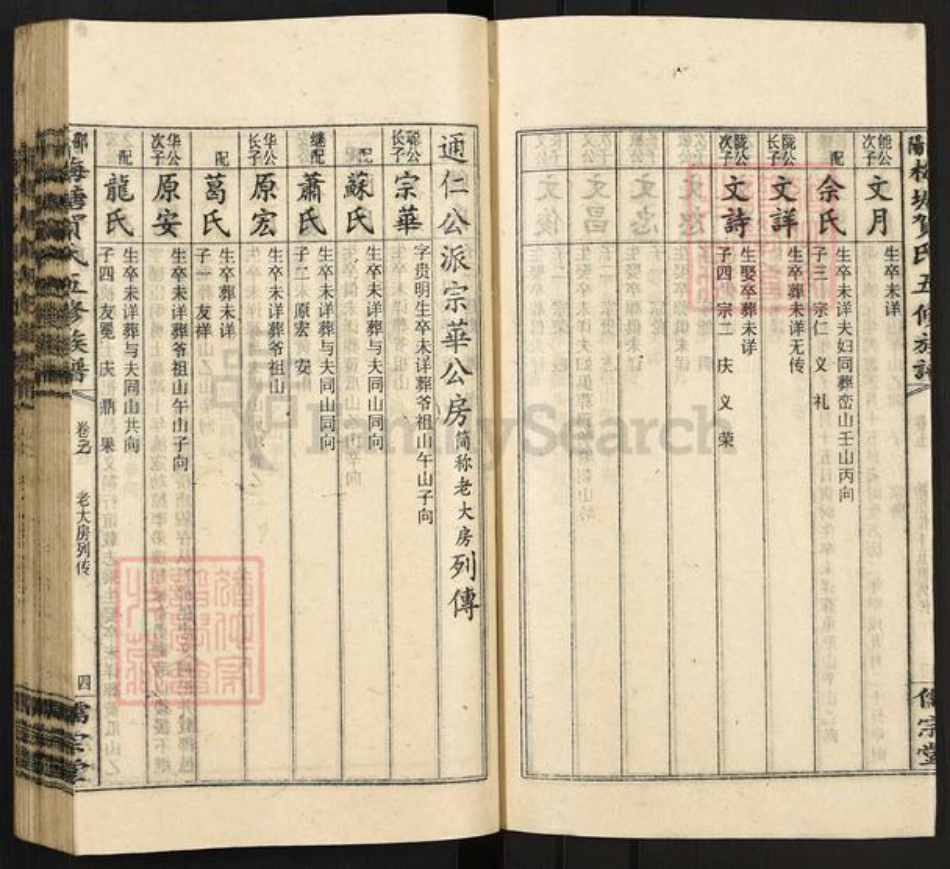 能公次子 文月 生卒未详
配 佘氏 生卒未详夫妇同葬峦山壬山丙向
子三 宗仁 义 礼
陇公长子 文詳 生卒葬未详无传
陇公次子 文詩 生娶卒葬未详
子四 宗二 庆 义 荣
儒宗堂
通仁公派宗華公房简称老大房列傳
聪公长子 宗華 字贵明生卒未详葬爷祖山午山子向
配 蘇氏 生卒未详葬与夫同山同向
继配 蕭氏 生卒未详葬与夫同山同向
子二 原宏 安
华公长子 原宏 生卒未详葬爷祖山
配 葛氏 生卒葬未详
子一 友祥
华公次子 原安 生卒未详葬爷祖山午山子向
配 龍氏 生卒未详葬与夫同山共向
子四 友冕 庆 鼎 果
梅塘賀氏五修族譜
老大房列传
四
儒宗堂
FamilySearch